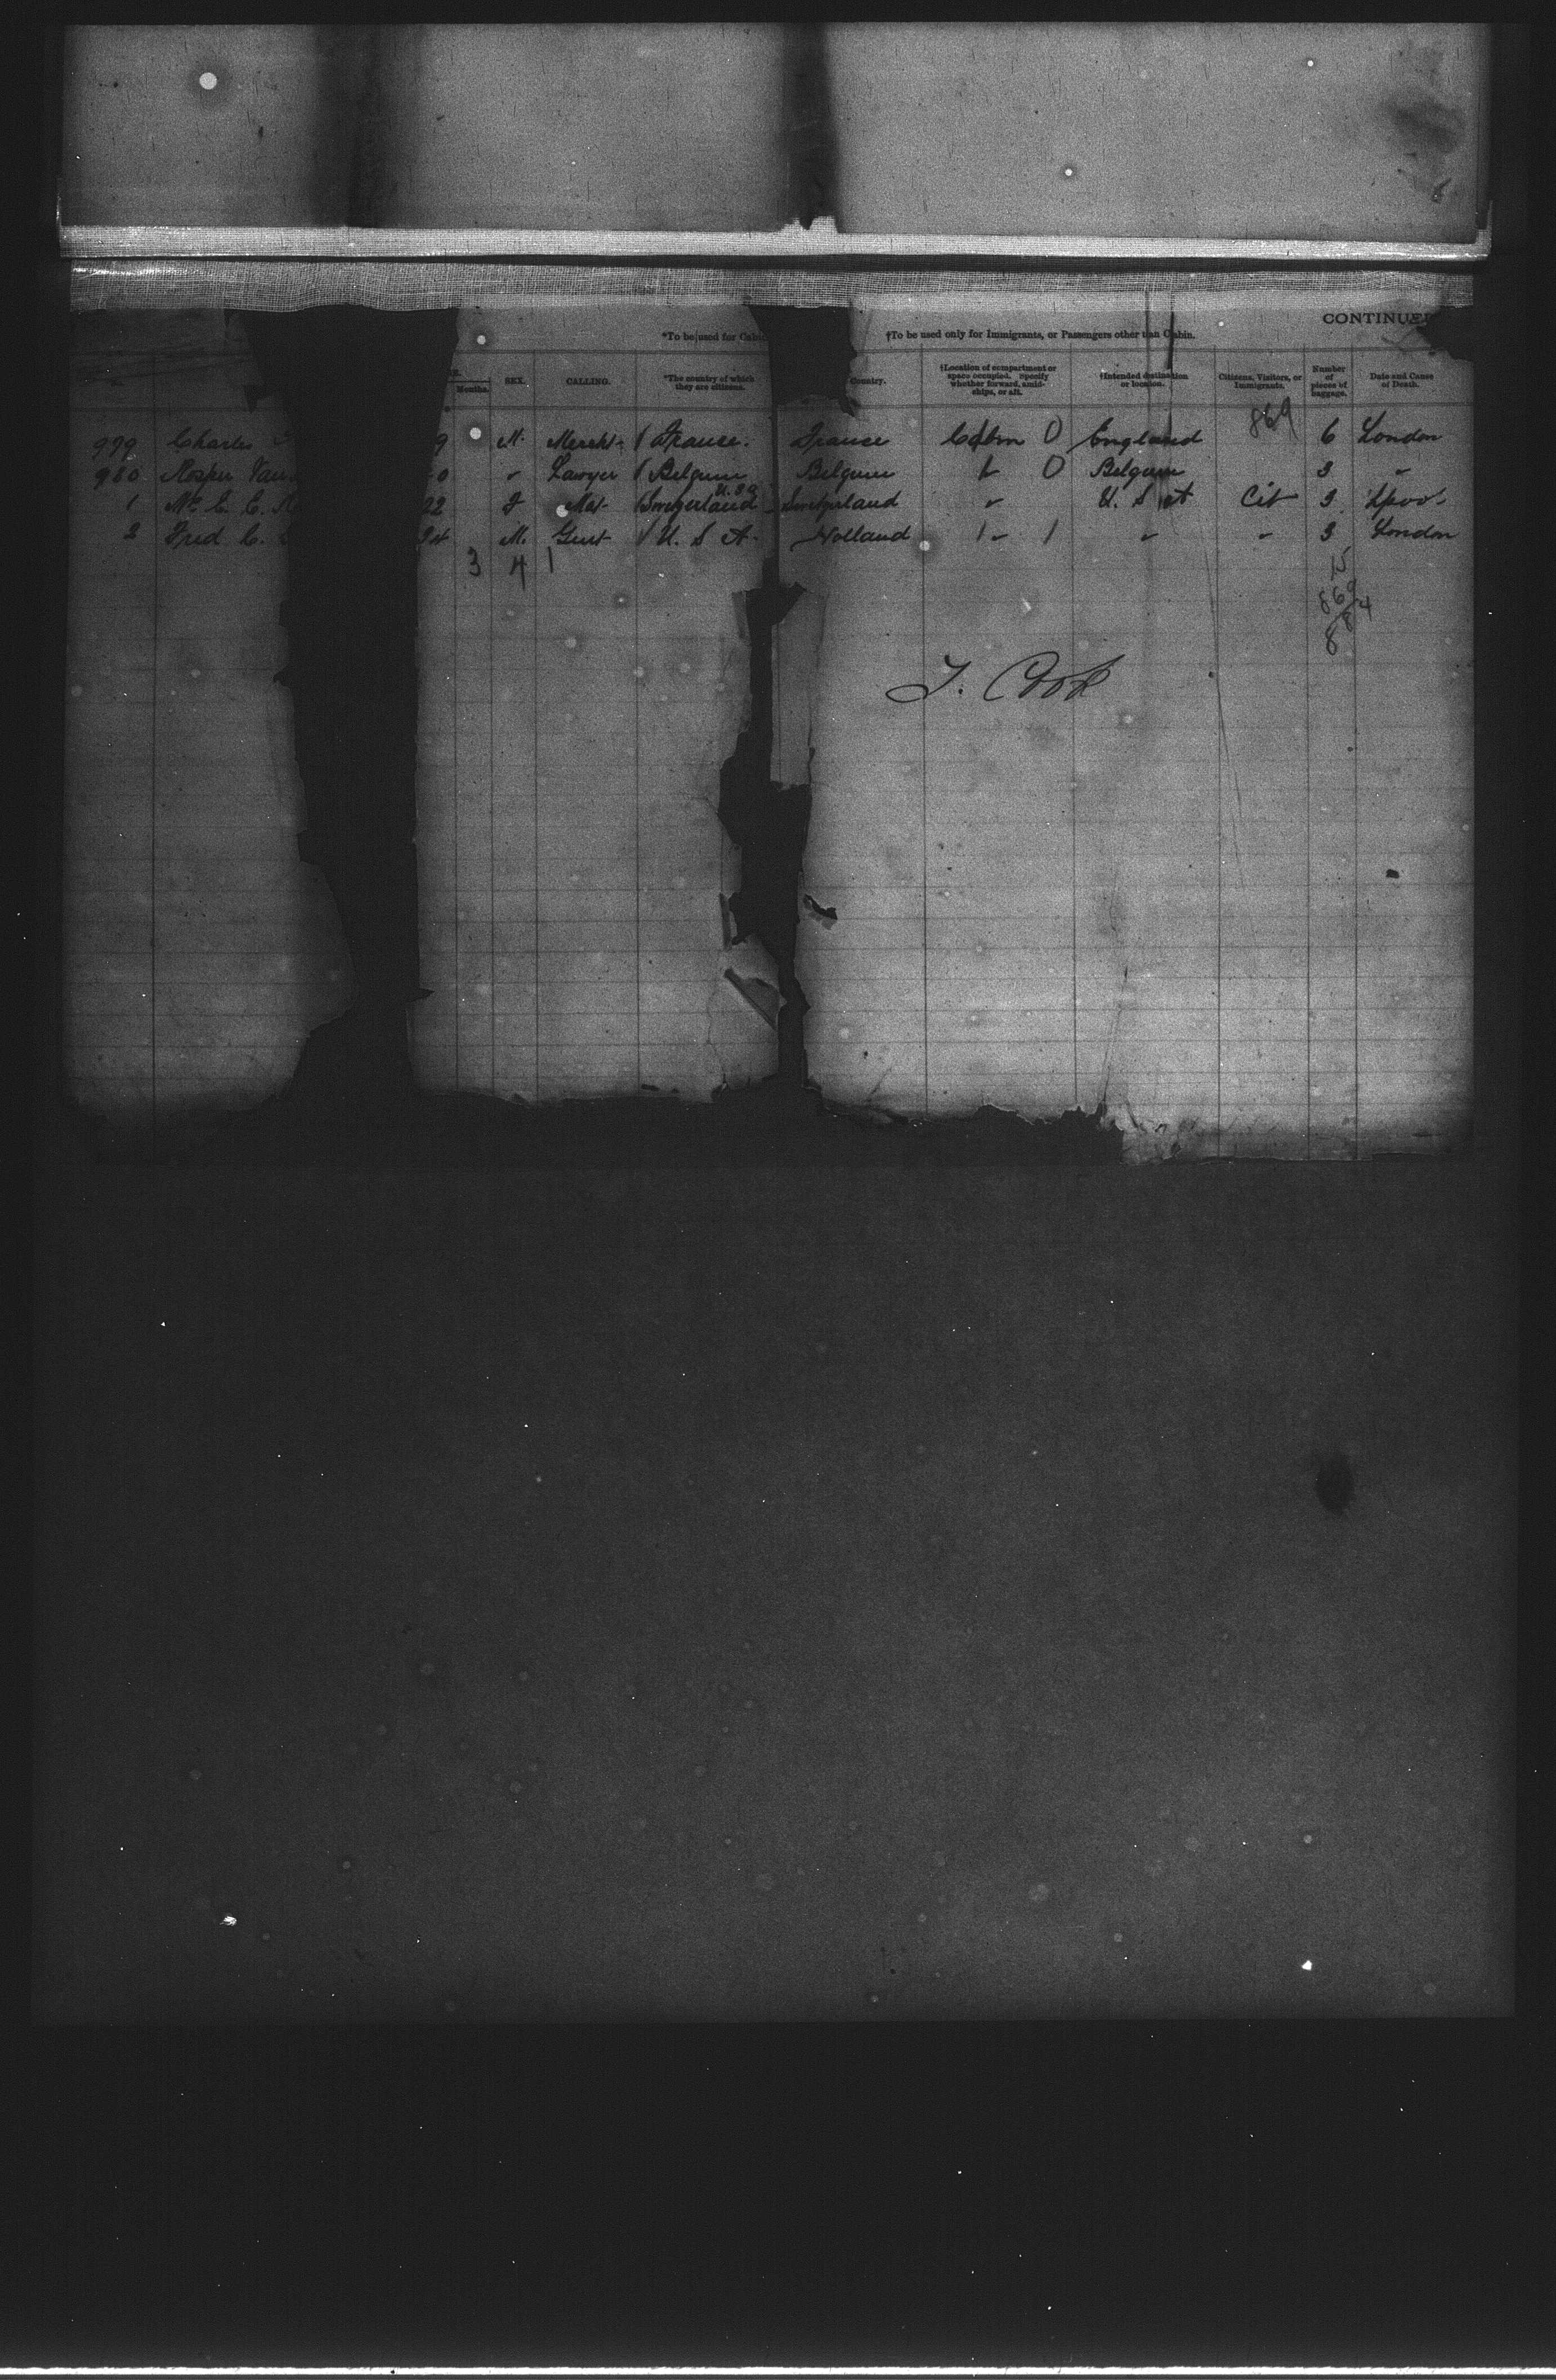 CONTINUED
*To be used for Cabin
†To be used only for Immigrants, or Passengers other than Cabin.
Months. SEX. CALLING. *The country of which they are citizens. Country. †Location of compartment or space occupied. Specify whether forward, amidships, or aft. †Intended destination or location. Citizens, Visitors, or Immigrants. Number of pieces of baggage. Date and Cause of Death.
869
979 Charles 9 M. Mercht. France. France Cabin 0 England 6 London
980 Van 0 " Lawyer Belgium Belgium 0 Belgium 3 "
U.S.A
1 E. C. 22 F Switzerland Switzerland " U. S. A Cit 3 Lpool
2 Fred C. 24 M. Gent U. S. A. Holland 1 " 1 " " 3 London
3 4 1
869
884
T. Cook